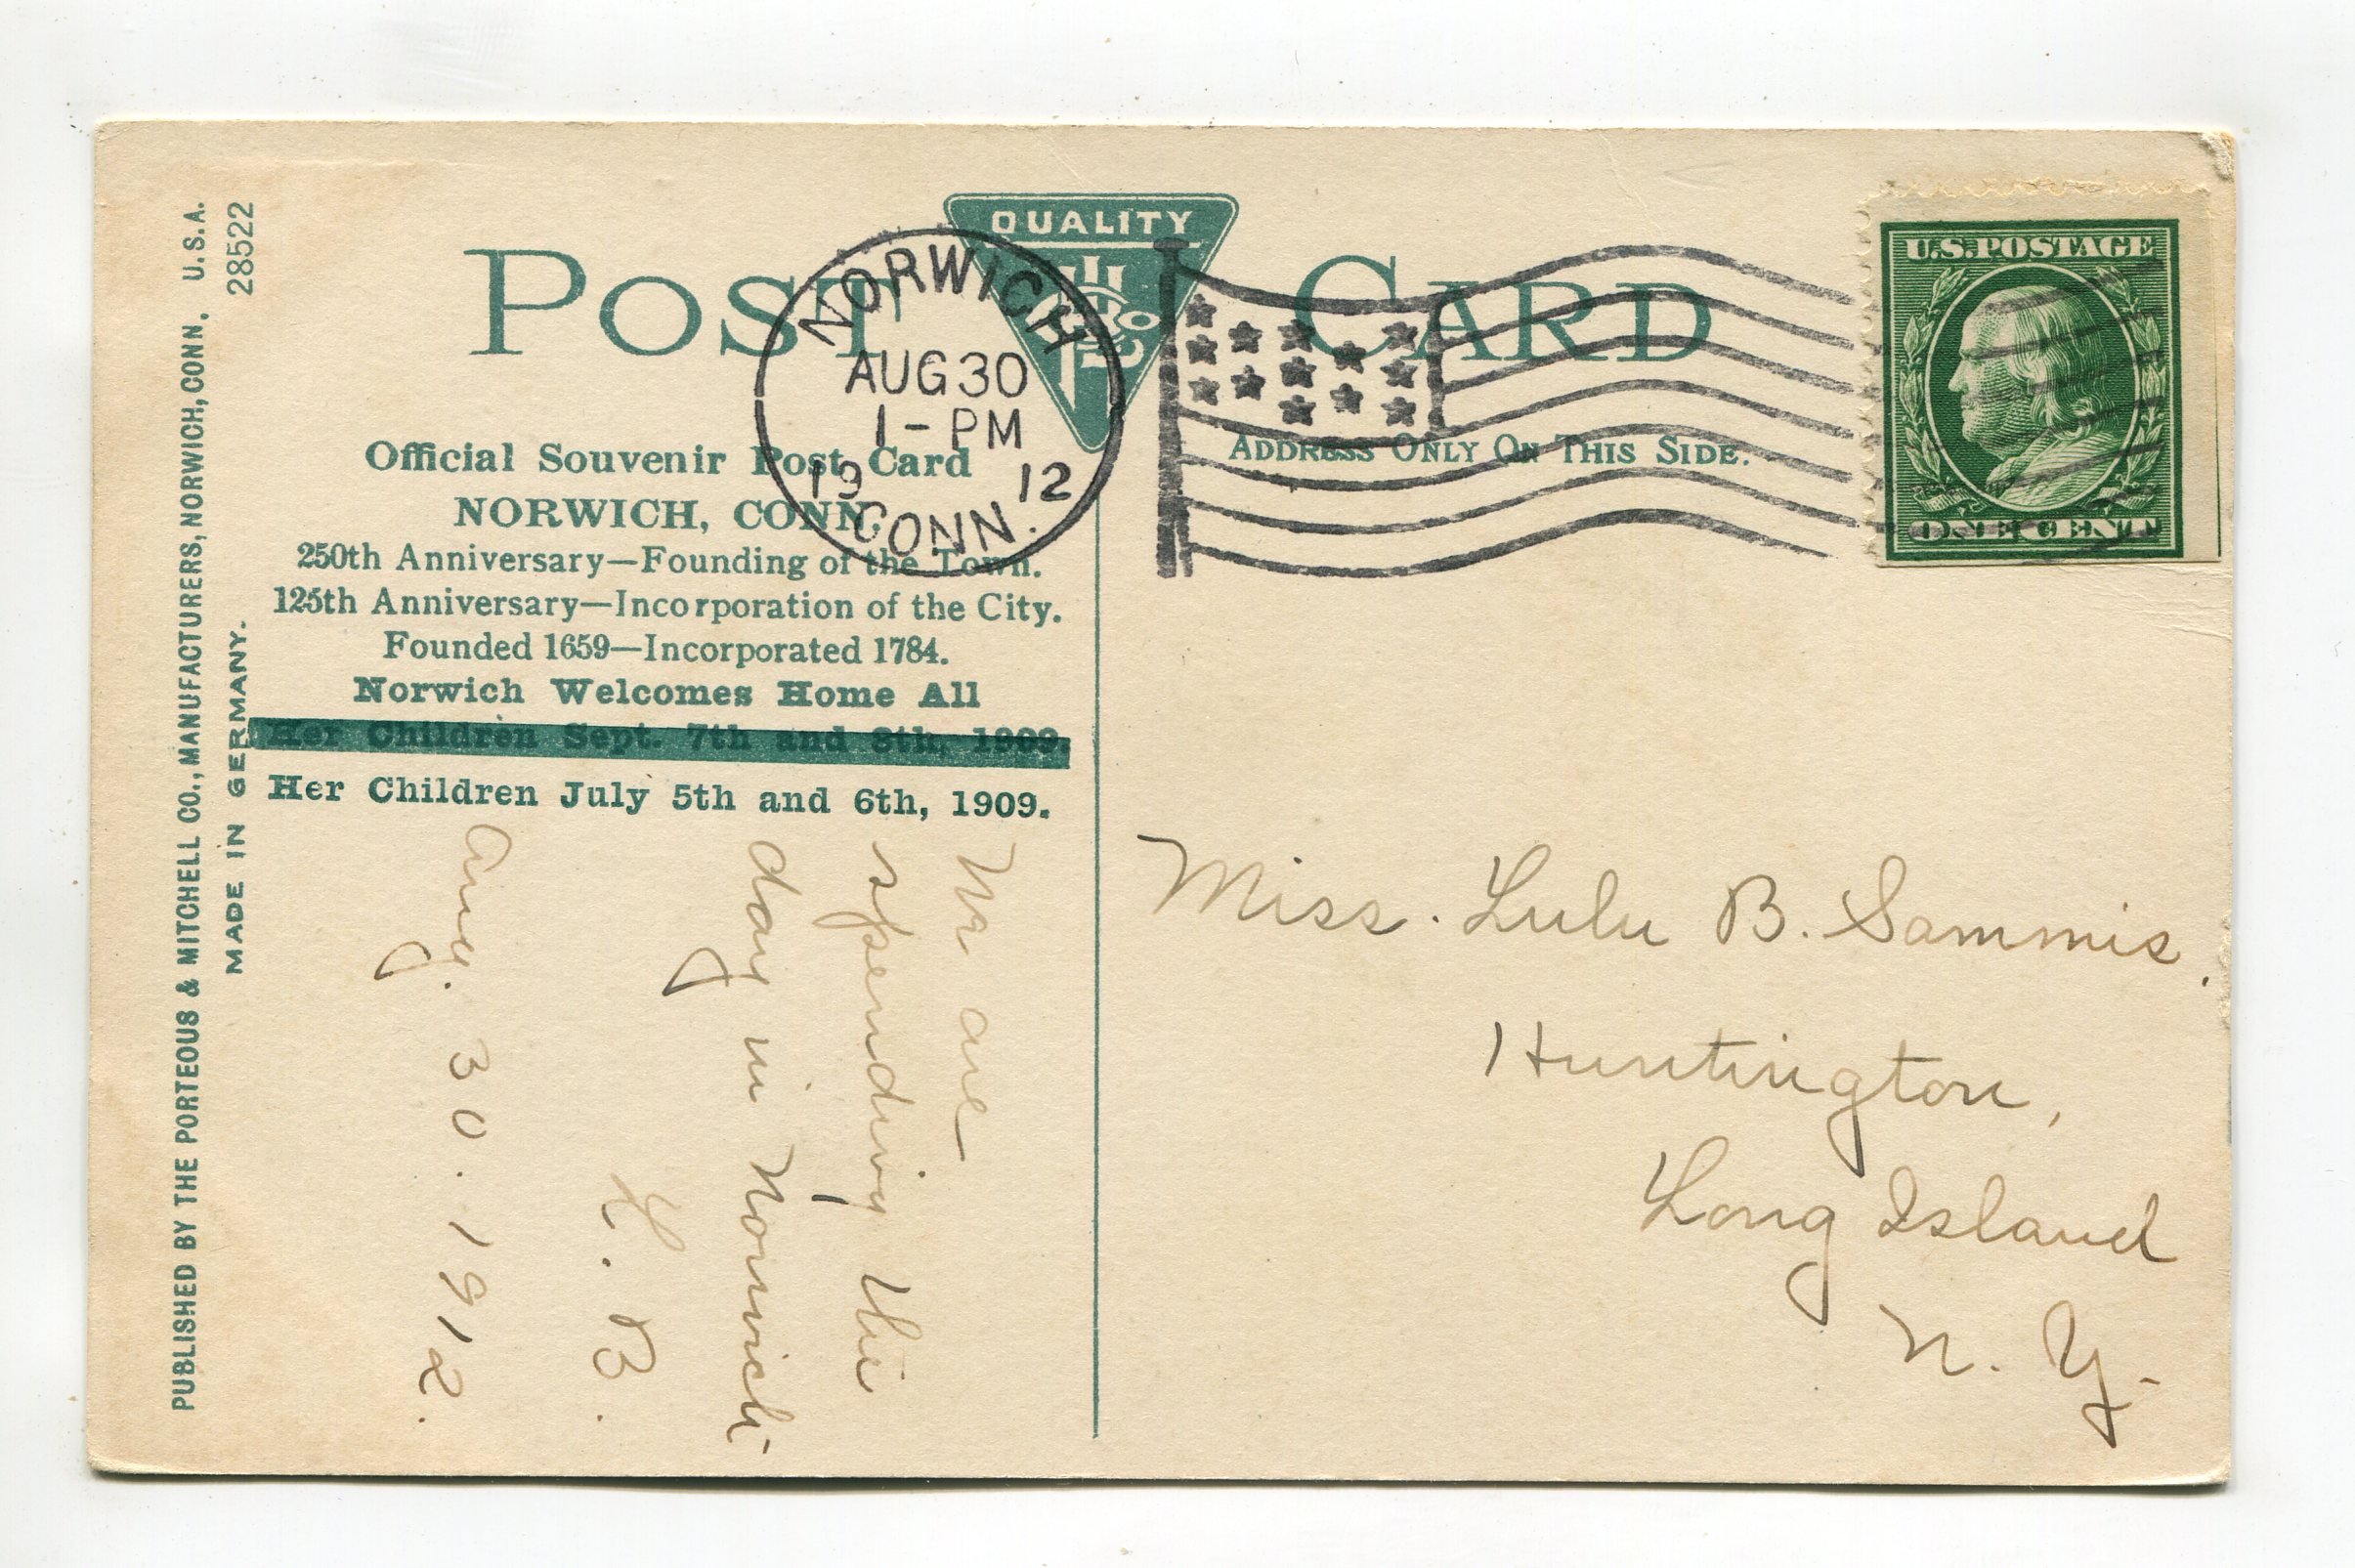 PUBLISHED BY THE PORTEOUS & MITCHELL CO., MANUFACTURERS, NORWICH, CONN. U.S.A.
MADE IN GERMANY.
28522
POST CARD
QUALITY
NORWICH
AUG 30
1-PM
19 12
CONN.
U.S. POSTAGE
ONE CENT
ADDRESS ONLY ON THIS SIDE.
Official Souvenir Post Card
NORWICH, CONN.
250th Anniversary—Founding of the Town.
125th Anniversary—Incorporation of the City.
Founded 1659—Incorporated 1784.
Norwich Welcomes Home All
Her Children Sept. 7th and 8th, 1909.
Her Children July 5th and 6th, 1909.
We are
spending the
day in Norwich
L. B.
Aug. 30. 1912.
Miss. Lulu B. Sammis.
Huntington,
Long Island
N. Y.